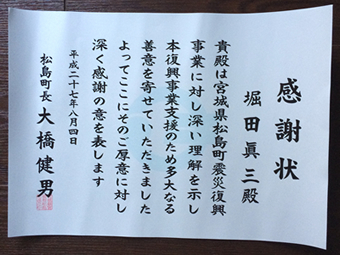 感謝状
堀田眞三殿
貴殿は宮城県松島町震災復興
事業に対し深い理解を示し
本復興事業支援のため多大なる
善意を寄せていただきました
よってここにそのご厚意に対し
深く感謝の意を表します
平成二十七年八月四日
松島町長 大橋健男